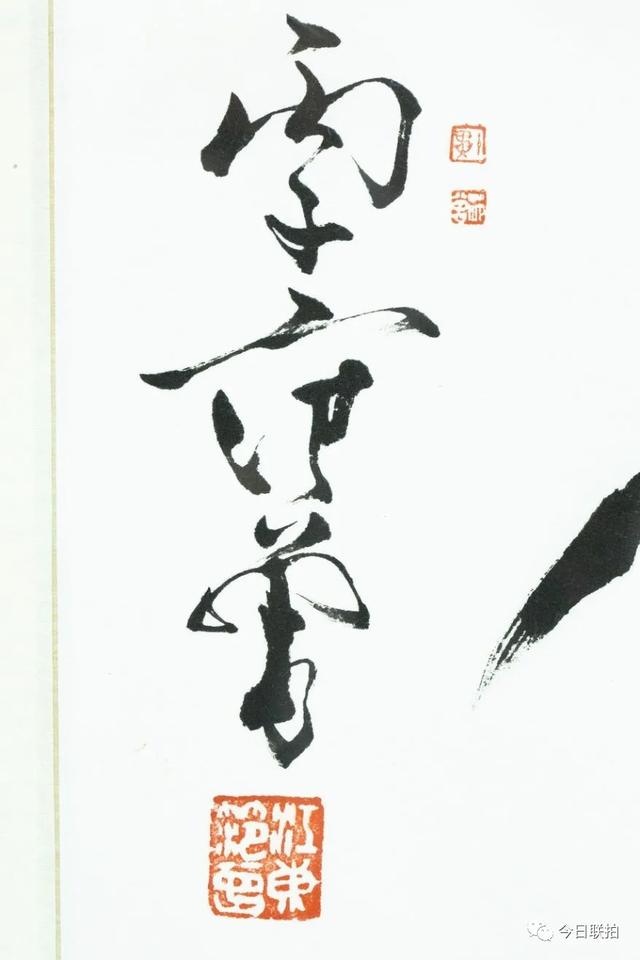 丙子范曾
江東范曾
今日联拍